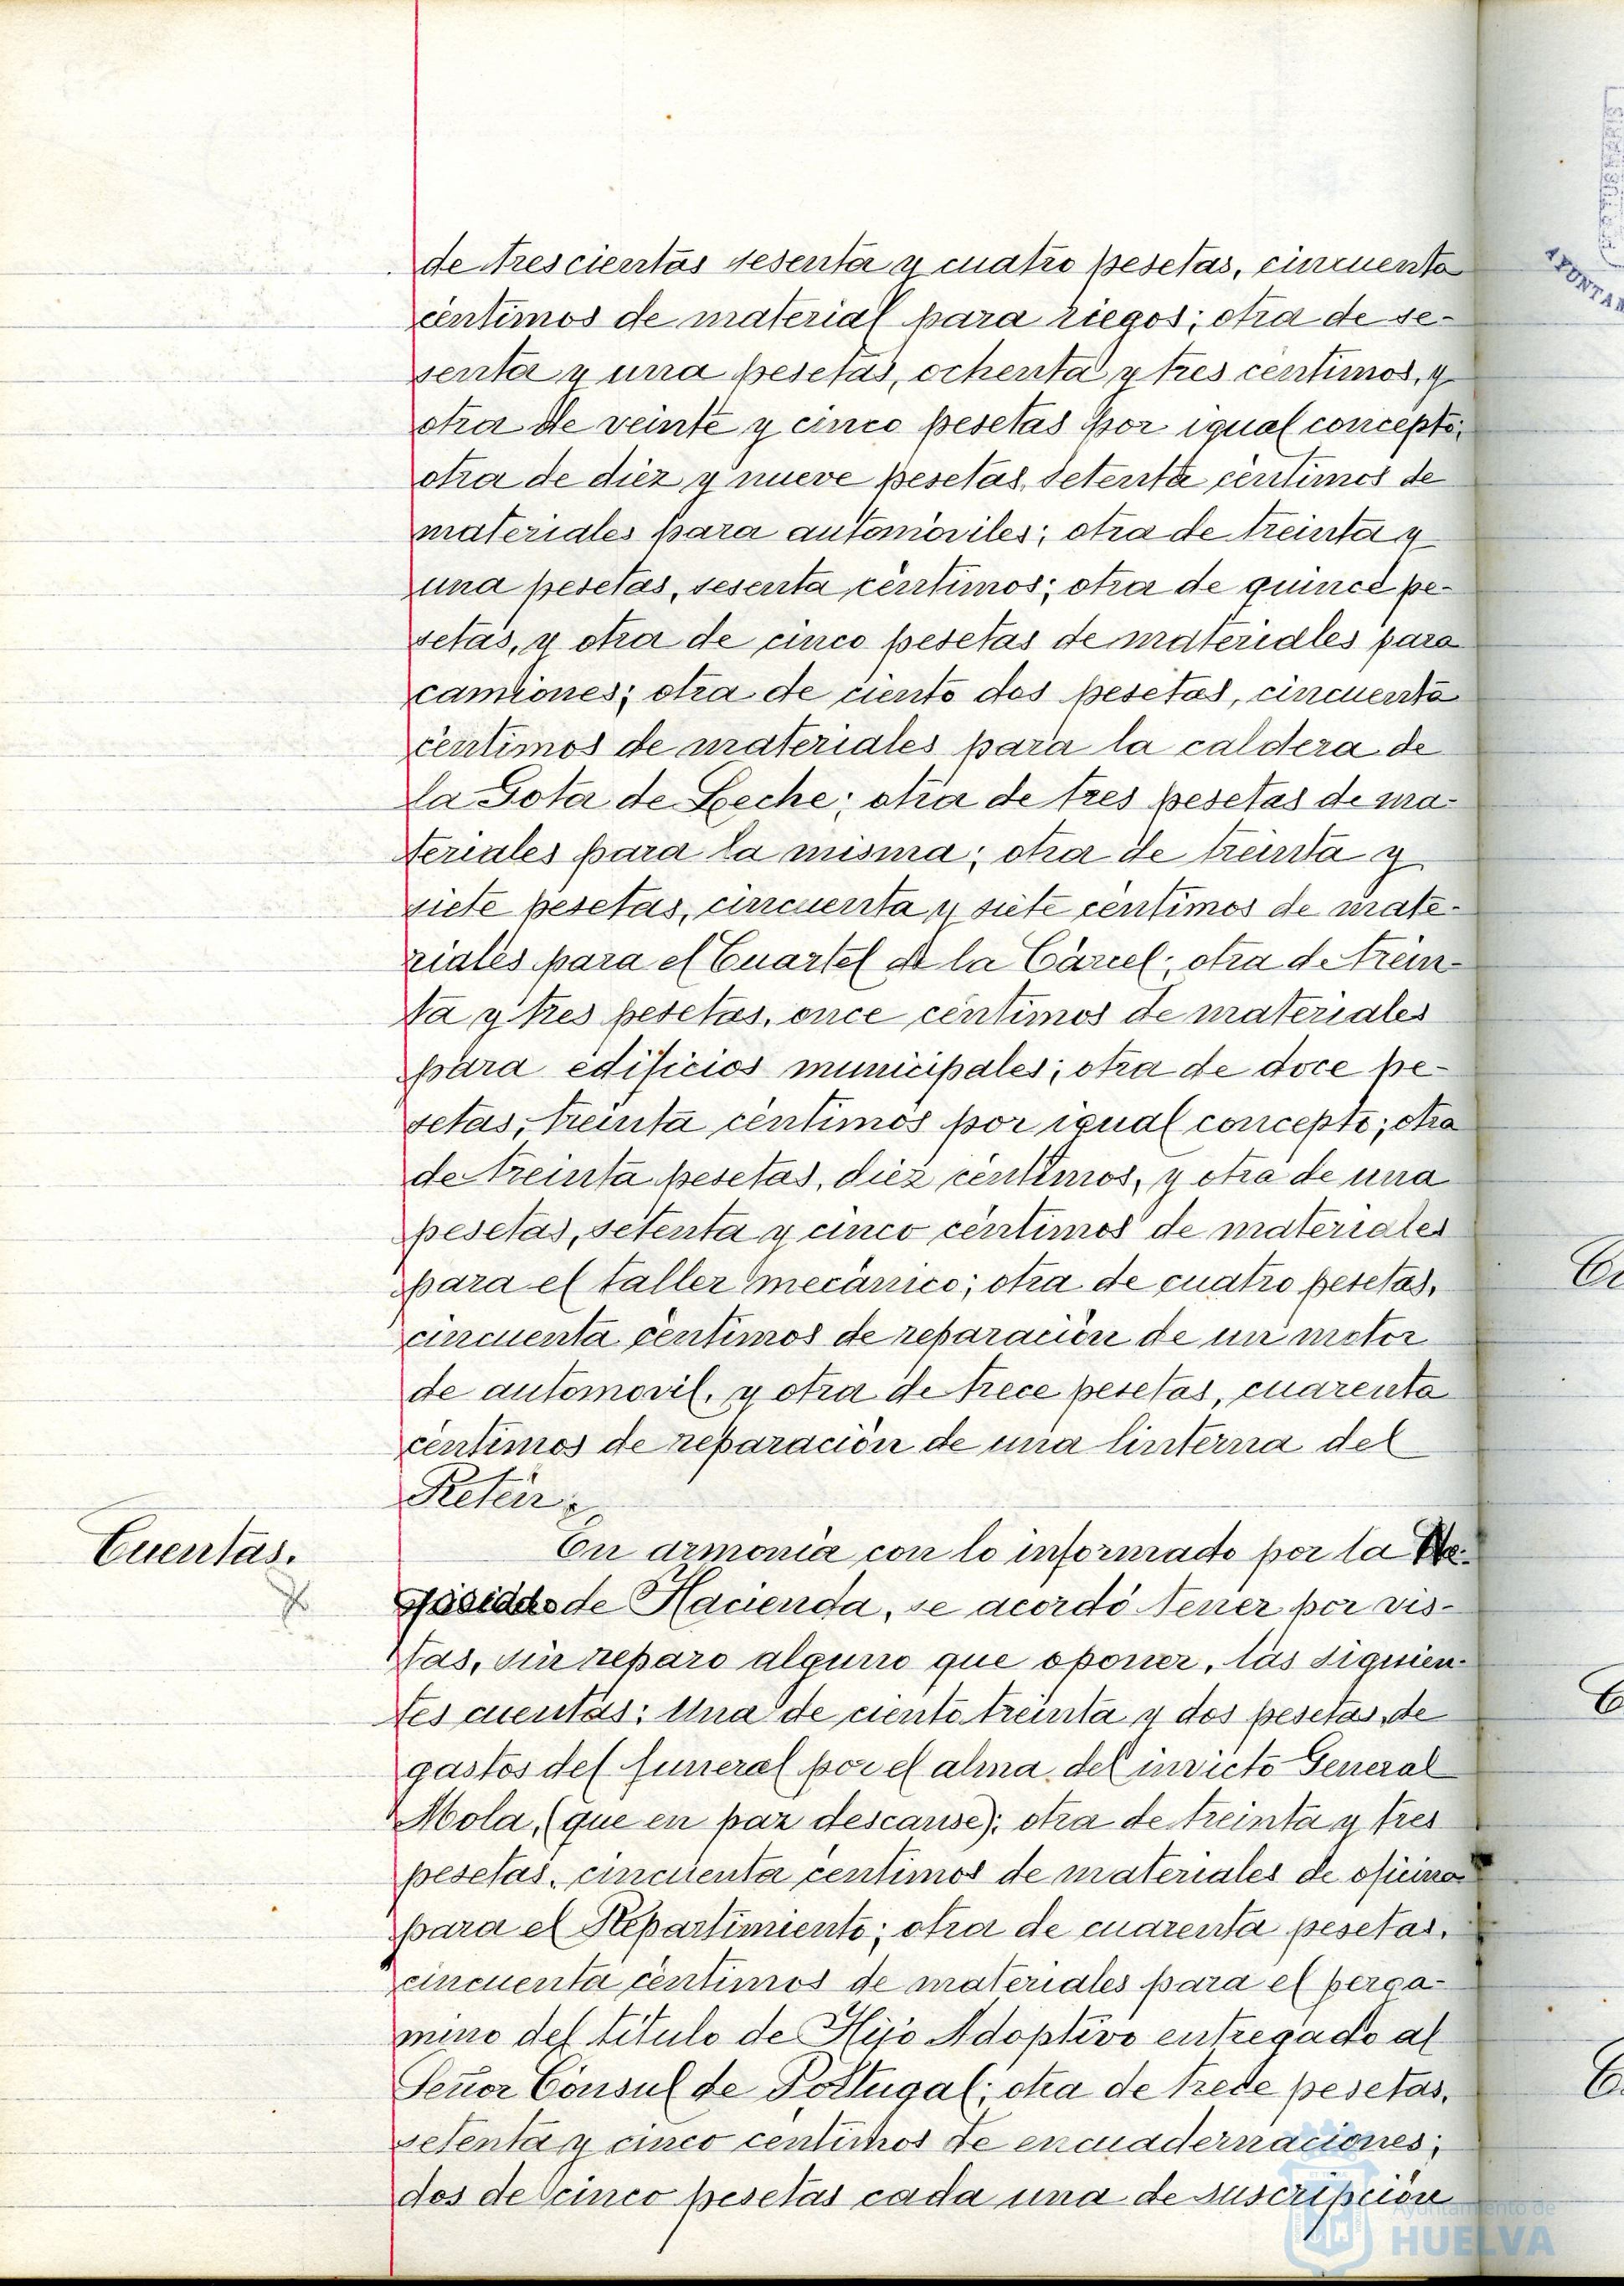 de trescientas sesenta y cuatro pesetas, cincuenta
céntimos de material para riegos; otra de se-
senta y una pesetas, ochenta y tres centimos, y
otra de veinte y cinco pesetas por igual concepto;
otra de diez y nueve pesetas, setenta centimos de
materiales para automóviles; otra de treinta y
una pesetas, sesenta céntimos; otra de quince pe-
setas, y otra de cinco pesetas de materiales para
camiones; otra de ciento dos pesetas, cincuenta
céntimos de materiales para la caldera de
la Gota de Leche; otra de tres pesetas de ma-
teriales para la misma; otra de treinta y
siete pesetas, cincuenta y siete centimos de mate-
riales para el Cuartel de la Cárcel; otra de trein-
ta y tres pesetas, once céntimos de materiales
para edificios municipales; otra de doce pe-
setas, treinta céntimos por igual concepto; otra
de treinta pesetas, diez centimos, y otra de una
pesetas, setenta y cinco céntimos de materiales
para el taller mecánico; otra de cuatro pesetas,
cincuenta céntimos de reparación de un motor
de automovil, y otra de trece pesetas, cuarenta
céntimos de reparación de una linterna del
Retén.
Cuentas.
En armonia con lo informado por la
de Hacienda, se acordó tener por vis-
tas, sin reparo alguno que oponer, las siguien-
tes cuentas: Una de ciento treinta y dos pesetas, de
gastos del funeral por el alma del invicto General
Mola, (que en paz descanse); otra de treinta y tres
pesetas, cincuenta centimos de materiales de oficina
para el Repartimiento; otra de cuarenta pesetas,
cincuenta céntimos de materiales para el perga-
mino del titulo de Hijo Adoptivo entregado al
Señor Cónsul de Portugal; otra de trece pesetas,
setenta y cinco centimos de encuadernaciones;
dos de cinco pesetas cada una de suscripción
Ayuntamiento de
HUELVA